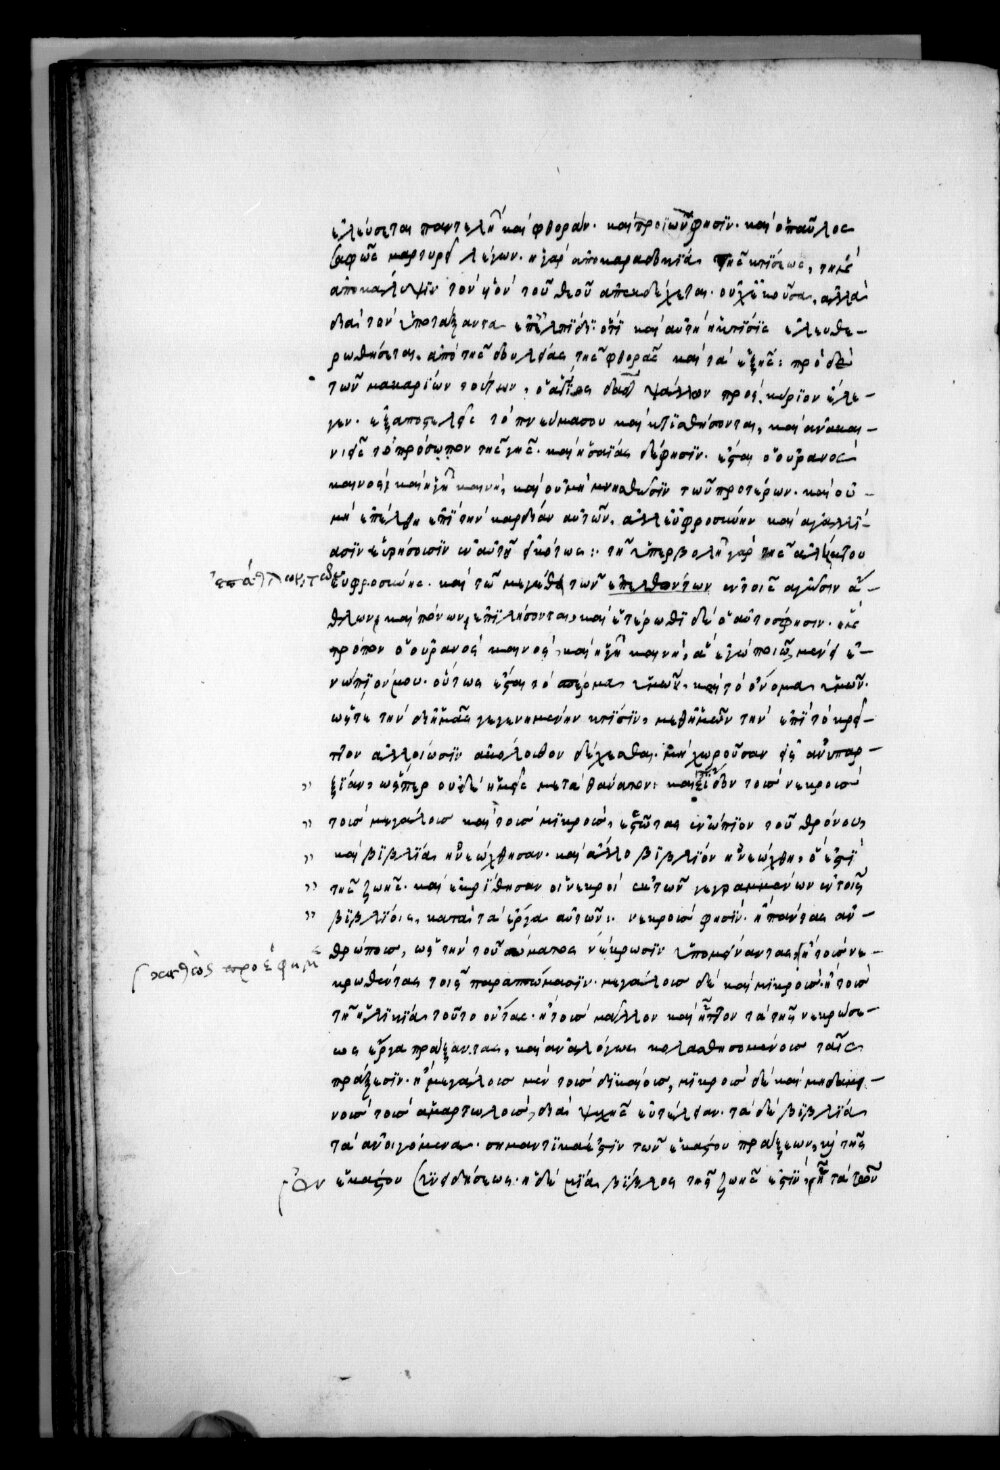 ἐλεύσεται παντελῆ καὶ φθοράν. καὶ προϊὼν φησίν. καὶ ὁ παῦλος
σαφῶς μαρτυρεῖ λέγων. ἡ γὰρ ἀποκαραδοκία τῆς κτίσεως, τὴν
ἀποκάλυψιν τῶν υἱῶν τοῦ θεοῦ ἀπεκδέχεται. οὐχ ἑκοῦσα, ἀλλὰ
διὰ τὸν ὑποτάξαντα ἐπ' ἐλπίδι· ὅτι καὶ αὐτὴ ἡ κτίσις ἐλευθε-
ρωθήσεται ἀπὸ τῆς δουλείας τῆς φθορᾶς καὶ τὰ ἑξῆς: πρὸ δὲ
τῶν μακαρίων τούτων, ὁ δαδ ψάλλων πρὸς κύριον ἔλε-
γεν. ἐξαποστελεῖς τὸ πνεῦμά σου καὶ κτισθήσονται, καὶ ἀνακαι-
νιεῖς τὸ πρόσωπον τῆς γῆς. καὶ ἡσαΐας δέ φησιν. ἔσται ὁ οὐρανὸς
καινὸς καὶ ἡ γῆ καινή, καὶ οὐ μὴ μνησθῶσιν τῶν προτέρων. καὶ οὐ
μὴ ἐπέλθη ἐπὶ τὴν καρδίαν αὐτῶν, ἀλλ' εὐφροσύνην καὶ ἀγαλλί-
ασιν εὑρήσουσιν ἐν αὐτῇ εἰκότως: τῇ ὑπερβολῇ γὰρ τῆς ἀλήκτου
ἐπάθλων, τῶν εὐφροσύνης. καὶ τῷ μεγέθει τῶν ἐπελθόντων ἐν τοῖς ἀγῶσιν ἄ-
θλων καὶ πόνων ἐπιλήσονται, καὶ ἑτέρωθι δὲ ὁ αὐτός φησιν. ὃν
τρόπον ὁ οὐρανὸς καινὸς, καὶ ἡ γῆ καινὴ, ἃ ἐγὼ ποιῶ, μενεῖ ἐ-
νώπιόν μου. οὕτως ἔσται τὸ σπέρμα ὑμῶν, καὶ τὸ ὄνομα ὑμῶν.
ὥστε τὴν δι' ἡμᾶς γεγενημένην κτίσιν, μεθ' ἡμῶν τὴν ἐπὶ τὸ κρεῖ-
ττον ἀλλοίωσιν ἀκόλουθον δέχεσθαι. μὴ χωροῦσαν εἰς ἀνυπαρ-
ξίαν, ὥσπερ οὐδὲ ἡμεῖς μετὰ θάνατον: καὶ εἶδον τοὺς νεκροὺς
τοὺς μεγάλους καὶ τοὺς μικροὺς, ἑστῶτας ἐνώπιον τοῦ θρόνου,
καὶ βιβλία ἠνεώχθησαν. καὶ ἄλλο βιβλίον ἠνεώχθη, ὅ ἐστι
τῆς ζωῆς. καὶ ἐκρίθησαν οἱ νεκροὶ ἐκ τῶν γεγραμμένων ἐν τοῖς
βιβλίοις, κατὰ τὰ ἔργα αὐτῶν: νεκροὺς φησὶν. ἢ πάντας ἀν-
θρώπους, ὡς τὴν τοῦ σώματος νέκρωσιν ὑπομείναντας, ἢ τοὺς νε-
κρωθέντας τοῖς παραπτώμασιν. μεγάλους δὲ καὶ μικροὺς. ἢ τοὺς
τῇ ἡλικίᾳ τοῦτο ὄντας. ἢ τοὺς μᾶλλον καὶ ἧττον τὰ τῆς νεκρώσε-
ως ἔργα πράξαντας, καὶ ἀναλόγως κολασθησομένους ταῖς
πράξεσιν. ἢ μεγάλους μὲν τοὺς δικαίους, μικροὺς δὲ καὶ μηδαμι-
νοὺς τοὺς ἁμαρτωλοὺς, διὰ ψυχῆς εὐτέλειαν. τὰ δὲ βιβλία
τὰ ἀνοιγόμενα. σημαντικά ἐστιν τῶν ἑκάστου πράξεων, κỳ τῆς
ἑκάστου συνειδήσεως. ἡ δὲ μία βίβλος τῆς ζωῆς ἐστὶν,